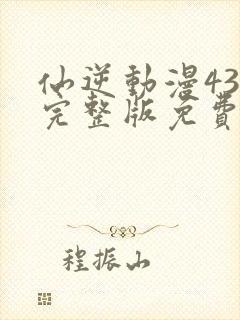 仙逆動漫43
完整版免費
程振山